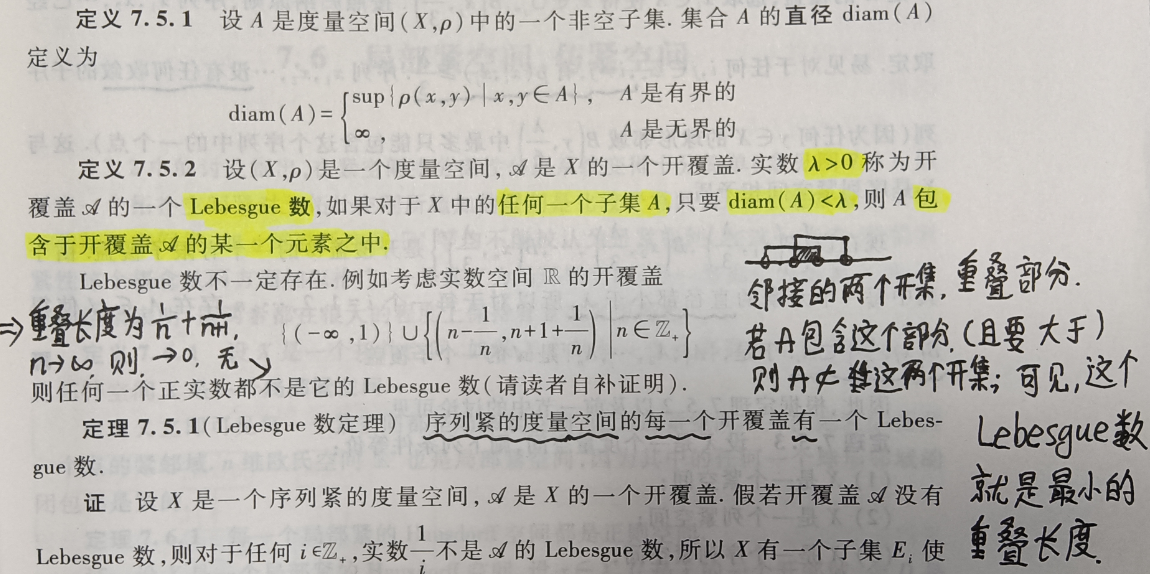 定义 7.5.1 设 A 是度量空间(X,ρ)中的一个非空子集. 集合 A 的直径 diam(A)
定义为
diam(A)={sup{ρ(x,y)|x,y∈A}, A 是有界的
∞ A 是无界的
定义 7.5.2 设(X,ρ)是一个度量空间,𝒜 是 X 的一个开覆盖. 实数 λ>0 称为开
覆盖 𝒜 的一个 Lebesgue 数,如果对于 X 中的任何一个子集 A,只要 diam(A)<λ,则 A 包
含于开覆盖 𝒜 的某一个元素之中.
Lebesgue 数不一定存在. 例如考虑实数空间 ℝ 的开覆盖
{(-∞,1)}∪{(n-1/n,n+1+1/n)|n∈ℤ₊}
则任何一个正实数都不是它的 Lebesgue 数(请读者自补证明).
定理 7.5.1(Lebesgue 数定理) 序列紧的度量空间的每一个开覆盖有一个 Lebes-
gue 数.
证 设 X 是一个序列紧的度量空间,𝒜 是 X 的一个开覆盖. 假若开覆盖 𝒜 没有
Lebesgue 数,则对于任何 i∈ℤ₊,实数 1/i 不是 𝒜 的 Lebesgue 数,所以 X 有一个子集 Eᵢ 使
⇒重叠长度为 1/n + 1/(n+1),
n→∞, 则 →0. 无
邻接的两个开集, 重叠部分.
若A包含这个部分(且要大于)
则A⊄ 这两个开集; 可见,这个
Lebesgue数
就是最小的
重叠长度.